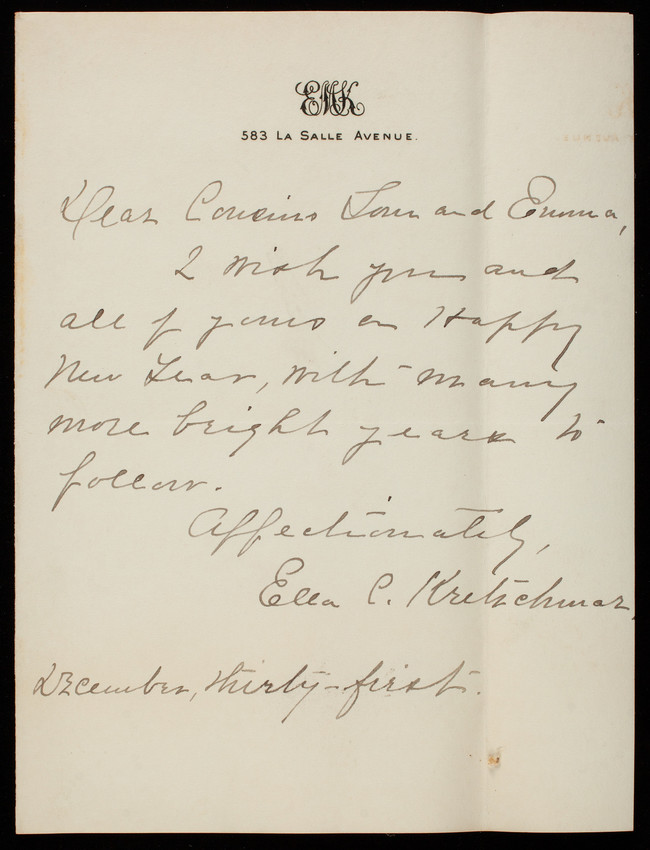 EMK
583 LA SALLE AVENUE.
Dear Cousins Tom and Emma,
I wish you and
all of yours a Happy
New Year, with many
more bright years to
follow.
Affectionately,
Ella C. Kretschmar.
December, thirty-first.